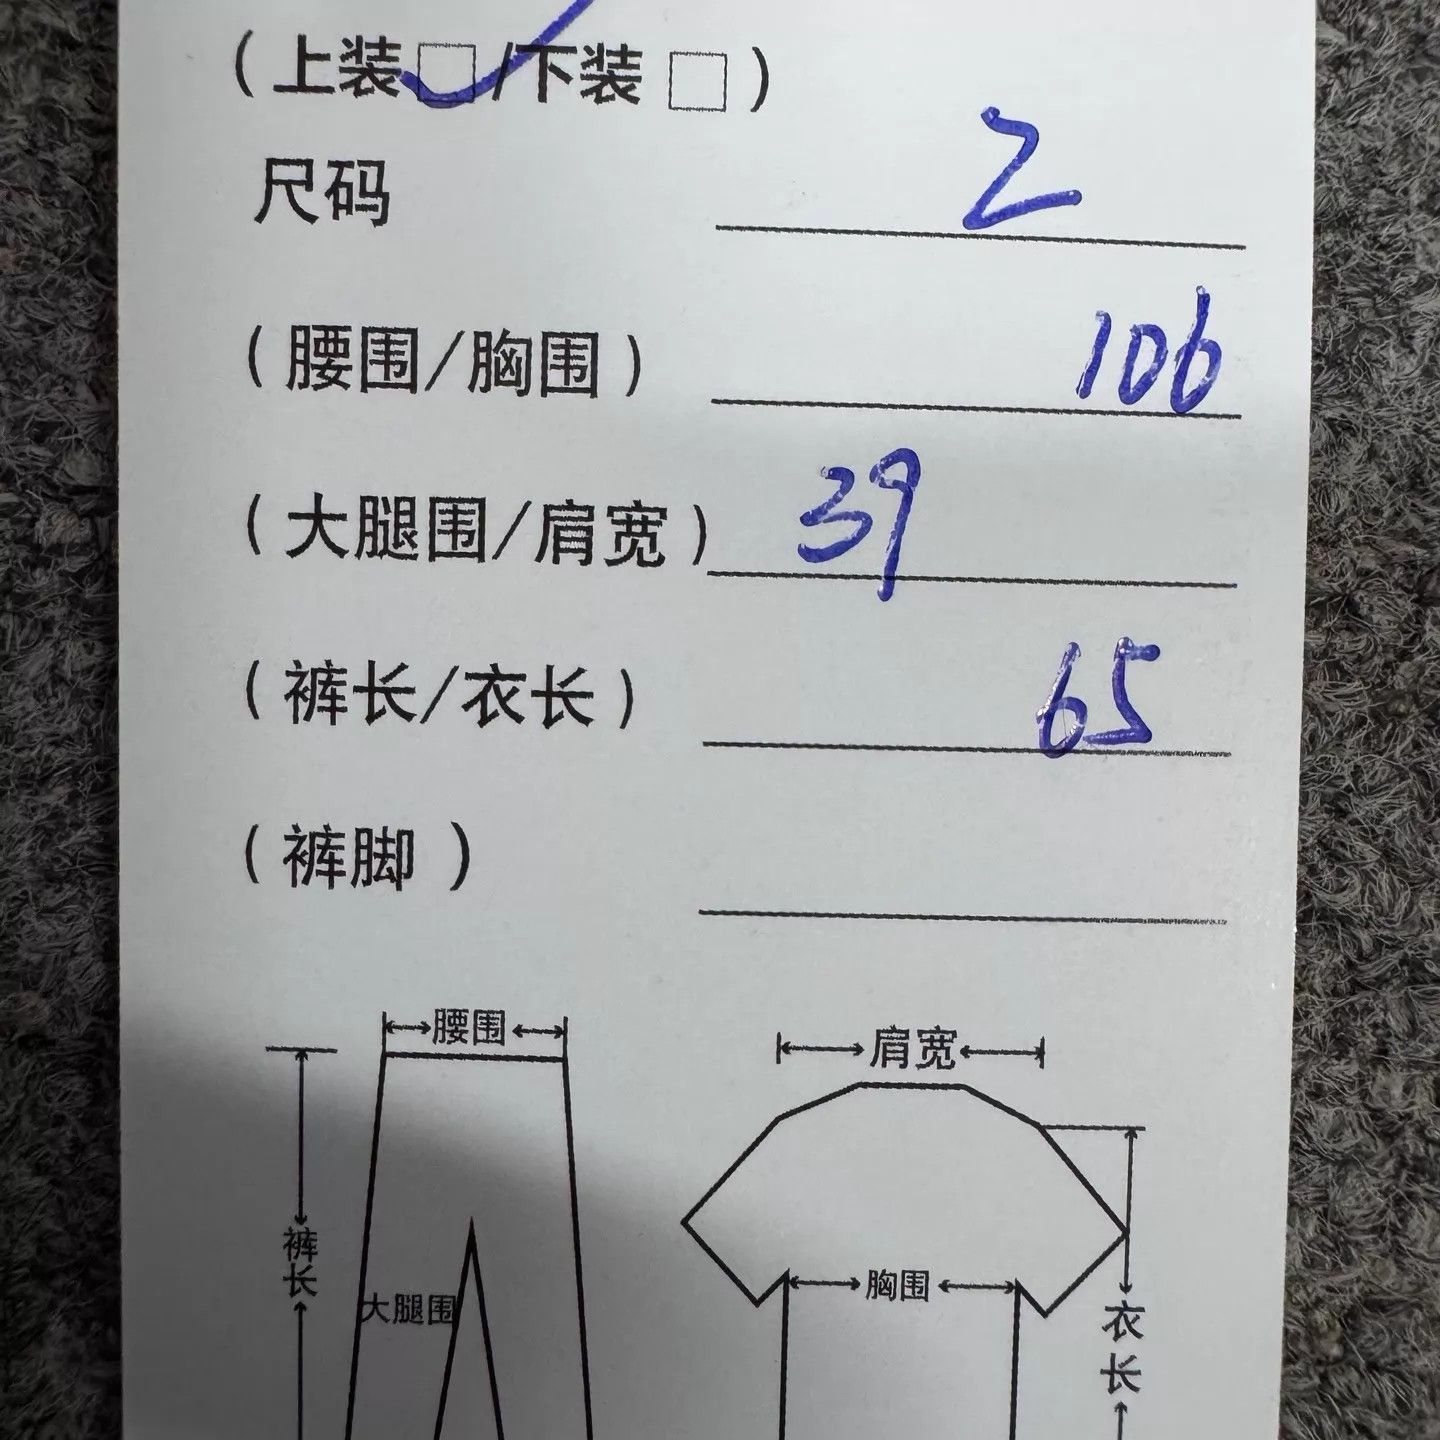 （上装□/下装□）
尺码 2
（腰围/胸围） 106
（大腿围/肩宽） 39
（裤长/衣长） 65
（裤脚）
腰围
肩宽
裤长
大腿围
胸围
衣长